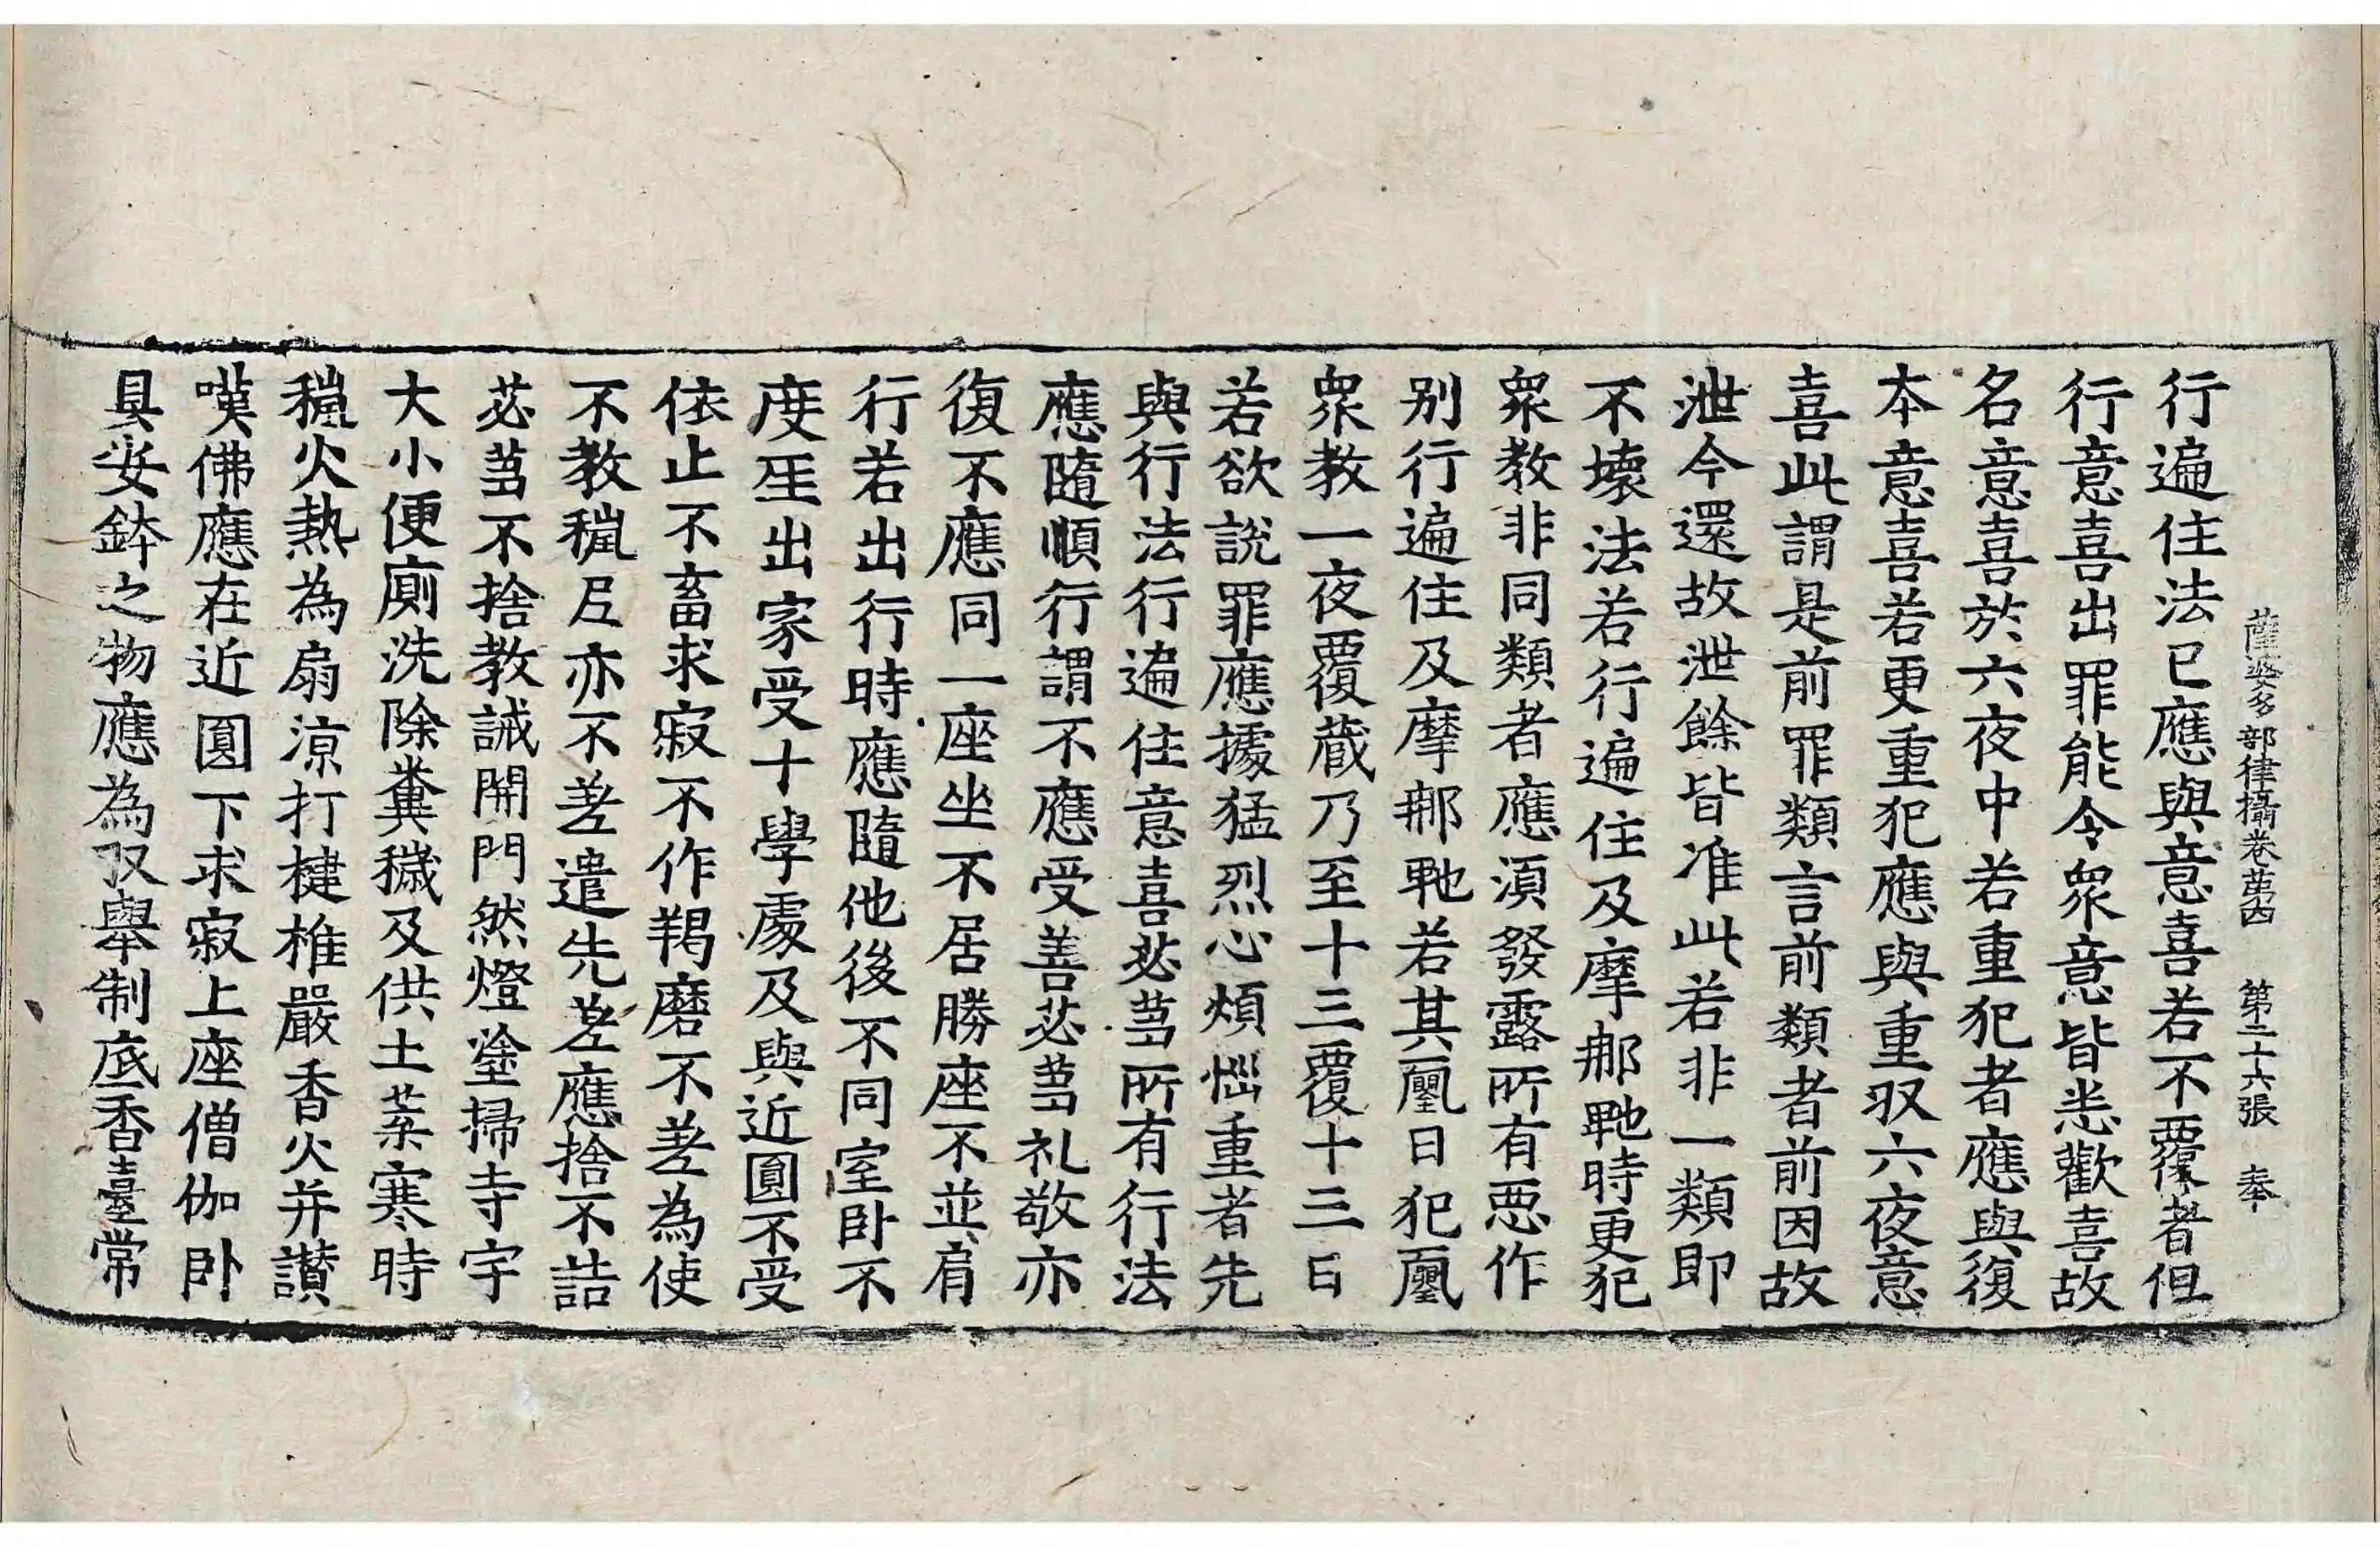 薩婆多部律攝卷苐四　第二十六張　奉
行遍住法已應與意喜若不覆者但
行意喜出罪能令衆意皆悉歡喜故
名意喜於六夜中若重犯者應與復
本意喜若更重犯應與重収六夜意
喜此謂是前罪類言前類者前因故
泄今還故泄餘皆准此若非一類即
不壞法若行遍住及摩𨚗𤙖時更犯
衆教非同類者應湏發露所有悪作
别行遍住及摩𨚗𤙖若其𠙖日犯𠙖
衆教一夜覆蔵乃至十三覆十三日
若欲說罪應據猛烈心煩惱重者先
與行法行遍住意喜苾蒭所有行法
應隨順行謂不應受善苾蒭礼敬亦
復不應同一座坐不居勝座不並肩
行若出行時應隨他後不同室卧不
度𤯔出家受十學處及與近圓不受
依止不畜求寂不作羯磨不差為使
不教𦮼𡰱亦不差遣先差應捨不詰
苾蒭不捨教誡開門然燈塗掃寺宇
大小便廁洗除糞穢及供土葉寒時
𦮼火熱為扇涼打揵椎嚴香火并讃
嘆佛應在近圓下求寂上座僧伽卧
具安鉢之物應為収舉制底香臺常